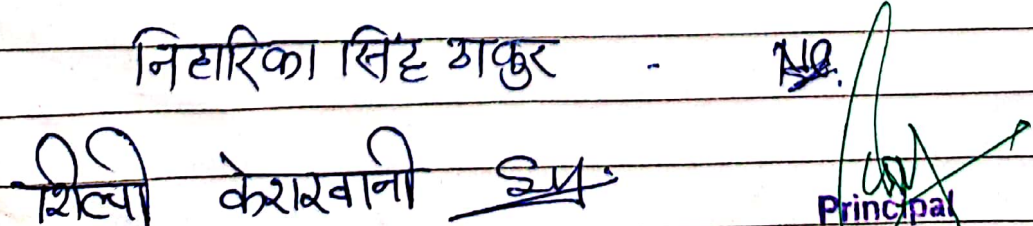 निहारिका सिंह ठाकुर -
शिल्पी केशरवानी
Principal